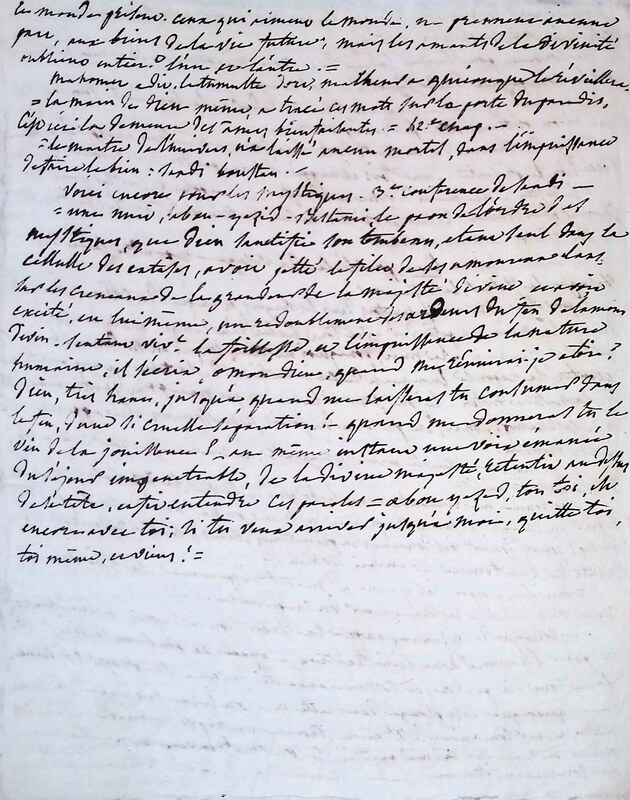 ce monde prison. ceux qui aiment le monde, ne prennent aucune
part, aux biens de la vie future, mais les amants de la divinité
oublient entier. l'un et l'autre. =
mahomet a dit, le tumulte dort, malheur a quiconque le réveillera,
= la main de dieu même, a tracé ces mots sur la porte du paradis,
C'est ici la demeure des ames bienfaisantes = 42.e chap. -
= le maitre de l'univers, n'a laissé aucun mortel, dans l'impuissance
de faire le bien : sadi boustan. -
Voici encore pour les mystiques. 3.e conférence de sadi -
= une nuit, abou-yezid - le pron de l'ordre des
mystiques, que dieu sanctifie son tombeau, etant seul dans la
cellulle des extases, avoit jetté le filet de ses amours dans
sur les creneaux de la grandeur de la majesté divine et avoit
excité, en lui même, un redoublement des ardeurs du feu de l'amour
divin. sentant la foiblesse, et l'impuissance de la nature
humaine, il s'écria, o mon dieu, quand me réunirai-je a toi ?
Dieu, très haut, jusqu'à quand me laisseras tu consumer dans
le feu, d'une si cruelle séparation ! - quand me donneras tu le
vin de la jouissance ? au même instant une voix émanée
du séjour impénétrable, de la divine majesté, retentit au dessus
de sa tête, et fit entendre ces paroles = abou yezid, ton toi, est
encore avec toi, si tu veux arriver jusqu'à moi, quitte toi,
toi même, et viens ! =